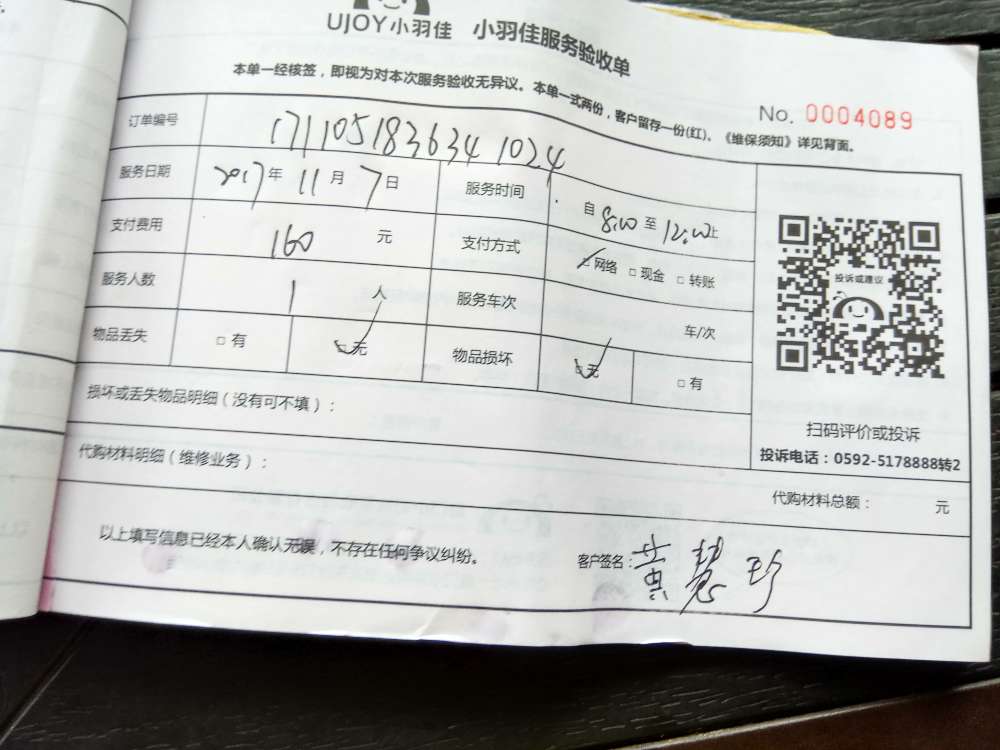 UJOY小羽佳 小羽佳服务验收单
本单一经核签，即视为对本次服务验收无异议。本单一式两份，客户留存一份(红)。《维保须知》详见背面。
No. 0004089
订单编号 1711051836341024
服务日期 2017年11月7日 服务时间 自8:00至12:00止
支付费用 160 元 支付方式 ☑网络 □现金 □转账
服务人数 1 人 服务车次 车/次
物品丢失 □有 ☑无 物品损坏 ☑无 □有
投诉或建议
扫码评价或投诉
投诉电话：0592-5178888转2
损坏或丢失物品明细（没有可不填）：
代购材料明细（维修业务）：
代购材料总额： 元
以上填写信息已经本人确认无误，不存在任何争议纠纷。
客户签名：黄慧珍